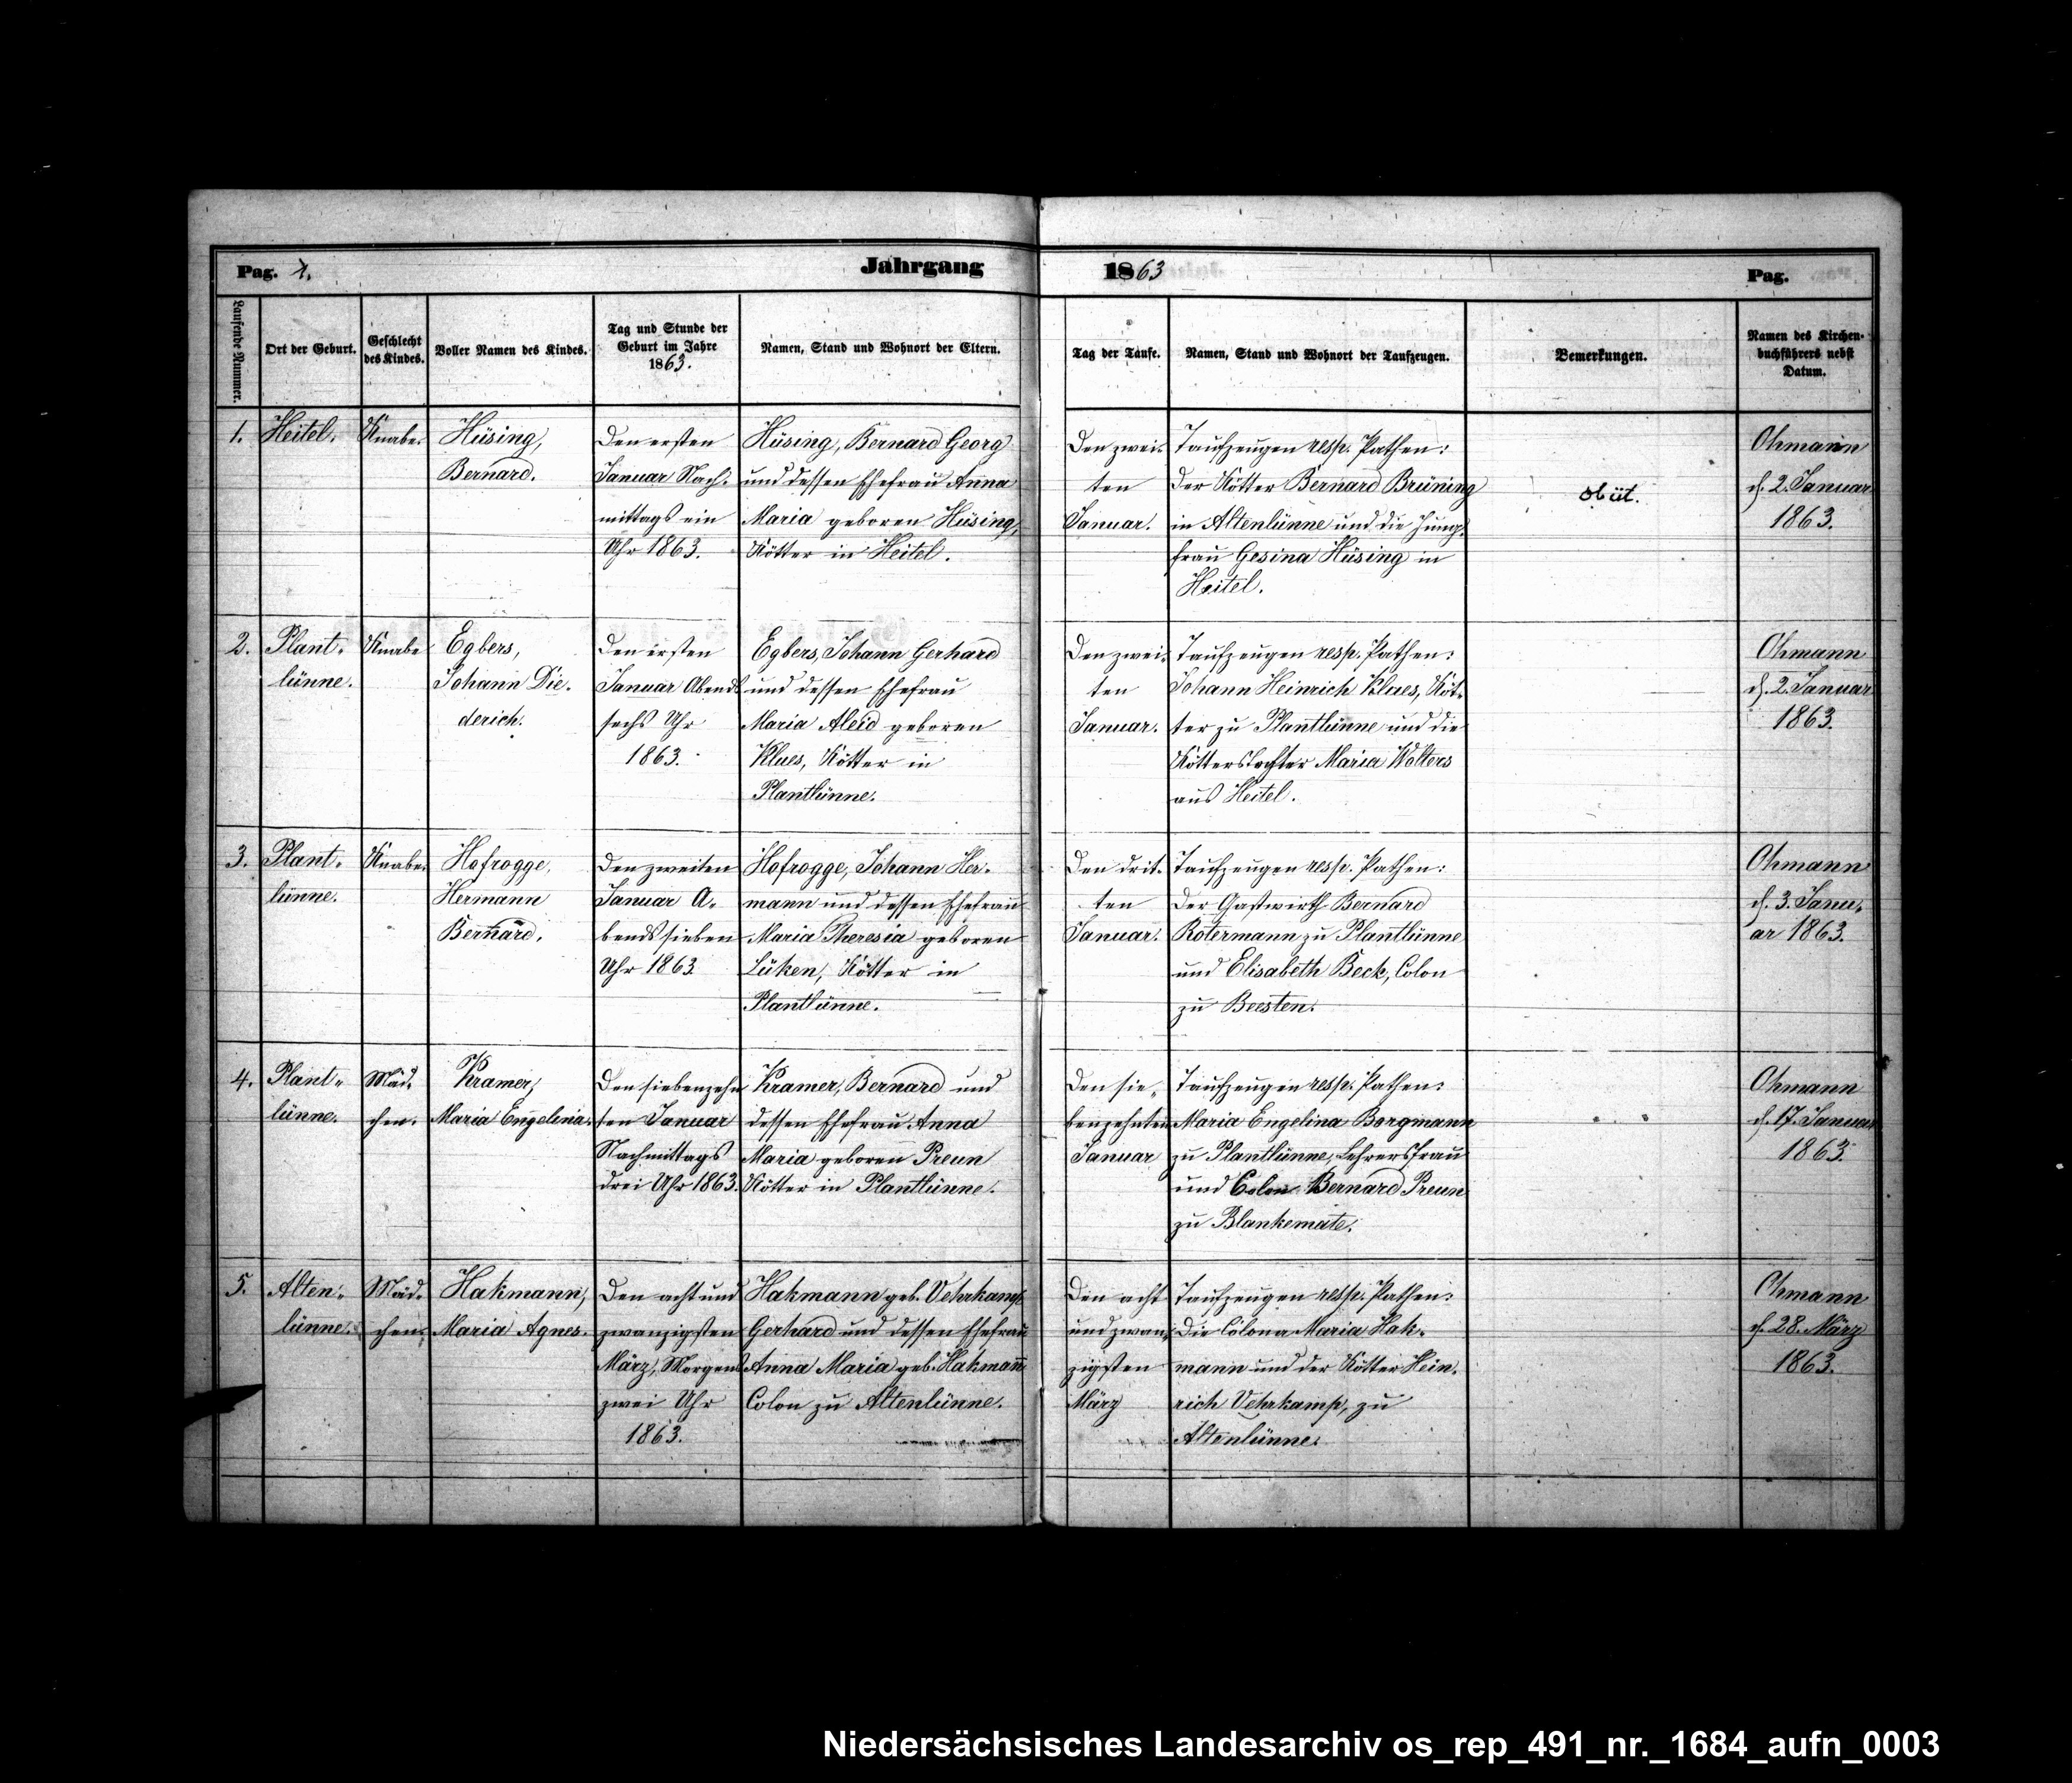 Pag. 1.
Jahrgang
1863
Pag.
Laufende Nummer.
Ort der Geburt.
Geschlecht
des Kindes.
Voller Namen des Kindes.
Tag und Stunde der
Geburt im Jahre
1863.
Namen, Stand und Wohnort der Eltern.
Tag der Taufe.
Namen, Stand und Wohnort der Taufzeugen.
Bemerkungen.
Namen des Kirchen-
buchführers nebst
Datum.
1.
Heitel.
Knabe.
Hüsing,
Bernard.
Den ersten
Januar Nach-
mittags ein
Uhr 1863.
Hüsing, Bernard Georg
und dessen Ehefrau Anna
Maria geboren Hüsing,
Kötter in Heitel.
Den zwei-
ten
Januar.
Taufzeugen resp. Pathen:
Der Kötter Bernard Brüning
in Altenlünne und die Jung-
frau Gesina Hüsing in
Heitel.
obiit.
Ohmann
d. 2. Januar
1863.
2.
Plant-
lünne.
Knabe
Egbers,
Johann Die-
derich.
Den ersten
Januar Abends
sechs Uhr
1863.
Egbers, Johann Gerhard
und dessen Ehefrau
Maria Aleid geboren
Klaes, Kötter in
Plantlünne.
Den zwei-
ten
Januar.
Taufzeugen resp. Pathen:
Johann Heinrich Klaes, Köt-
ter zu Plantlünne und die
Kötterstochter Maria Wolters
aus Heitel.
Ohmann
d. 2. Januar
1863.
3.
Plant-
lünne.
Knabe.
Hofrogge,
Hermann
Bernard.
Den zweiten
Januar A-
bends sieben
Uhr 1863
Hofrogge, Johann Her-
mann und dessen Ehefrau
Maria Theresia geboren
Lüken, Kötter in
Plantlünne.
Den drit-
ten
Januar.
Taufzeugen resp. Pathen:
Der Gastwirth Bernard
Rotermann zu Plantlünne
und Elisabeth Beck, Colon
zu Beesten.
Ohmann
d. 3. Janu-
ar 1863.
4.
Plant-
lünne.
Mäd-
chen.
Kramer,
Maria Engelina.
Den siebenzehn
ten Januar
Nachmittags
drei Uhr 1863.
Kramer, Bernard und
dessen Ehefrau Anna
Maria geboren Preun
Kötter in Plantlünne.
Den sie-
benzehnten
Januar
Taufzeugen resp. Pathen:
Maria Engelina Borgmann
zu Plantlünne, Lehrersfrau
und Colon Bernard Preun
zu Blankemate.
Ohmann
d. 17. Januar
1863.
5.
Alten-
lünne.
Mäd-
chen.
Hakmann,
Maria Agnes.
Den acht und
zwanzigsten
März, Morgens
zwei Uhr
1863.
Hakmann geb. Vehrkamp
Gerhard und dessen Ehefrau
Anna Maria geb. Hakmann
Colon zu Altenlünne.
Den acht
und zwan-
zigsten
März
Taufzeugen resp. Pathen:
Die Colona Maria Hak-
mann und der Kötter Hein-
rich Vehrkamp, zu
Altenlünne.
Ohmann
d. 28. März
1863.
Niedersächsisches Landesarchiv os_rep_491_nr._1684_aufn_0003